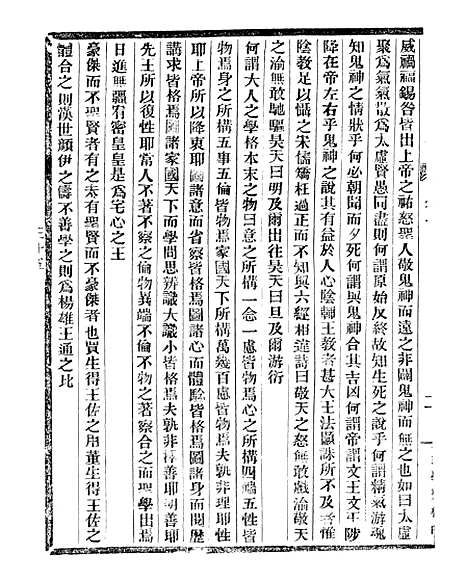 威禍福錫咎皆出上帝之祐怒聖人敬鬼神而遠之非闢鬼神而無之也如曰太虛
聚爲氣氣散爲太虛賢愚同盡則何謂原始反終故知生死之說乎何謂精氣游魂
知鬼神之情狀乎何必朝聞而夕死何謂與鬼神合其吉凶何謂帝謂文王文王陟
降在帝左右乎鬼神之說其有益於人心陰輔王敎者甚大王法顯誅所不及者惟
陰敎足以懾之宋儒矯枉過正而不知與六經相違詩曰敬天之怒無敢戲渝敬天
之渝無敢馳驅昊天曰明及爾出往昊天曰旦及爾游衍
何謂大人之學格本末之物曰意之所構一念一慮皆物焉心之所構四端五性皆
物焉身之所構五事五倫皆物焉家國天下所構萬幾百慮皆物焉夫孰非理耶性
耶上帝所以降衷耶圖諸意而省察皆格焉圖諸心而體驗皆格焉圖諸身而閱歷
講求皆格焉圖諸家國天下而學問思辨識大識小皆格焉夫孰非擇善耶明善耶
先王所以復性耶常人不著不察之倫物異端不倫不物之著察合之而聖學出焉
日進無疆宥密皇皇是爲宅心之王
豪傑而不聖賢者有之未有聖賢而不豪傑者也賈生得王佐之用董生得王佐之
體合之則漢世顏伊之儔不善學之則爲楊雄王通之比